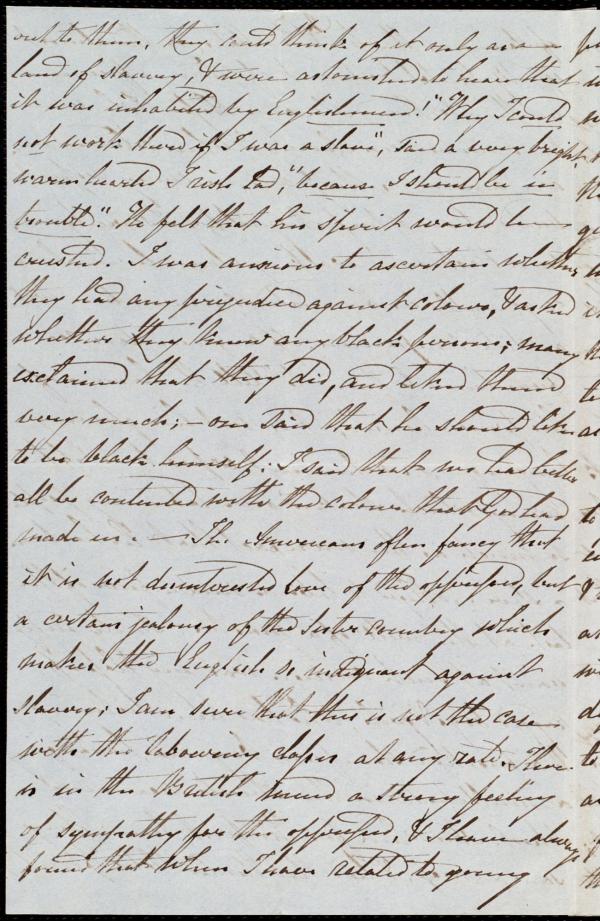 out to them, they could think of it only as a
land of slavery, & were astonished to hear that
it was inhabited by Englishmen! "Why I could
not work there if I was a slave", said a very bright,
warm hearted Irish lad, "because I should be in
trouble". He felt that his spirit would be
crushed. I was anxious to ascertain whether
they had any prejudice against colour, & asked
whether they knew any black persons; many
exclaimed that they did, and liked them
very much; - one said that he should like
to be black himself: I said that we had better
all be contented with the colour that God had
made us. - The Americans often fancy that
it is not disinterested love of the oppressed, but
a certain jealousy of the Sister country which
makes the English so indignant against
slavery; I am sure that this is not the case
with the labouring classes at any rate. There
is in the British mind a strong feeling
of sympathy for the oppressed, & I have always
found that when I have related to young